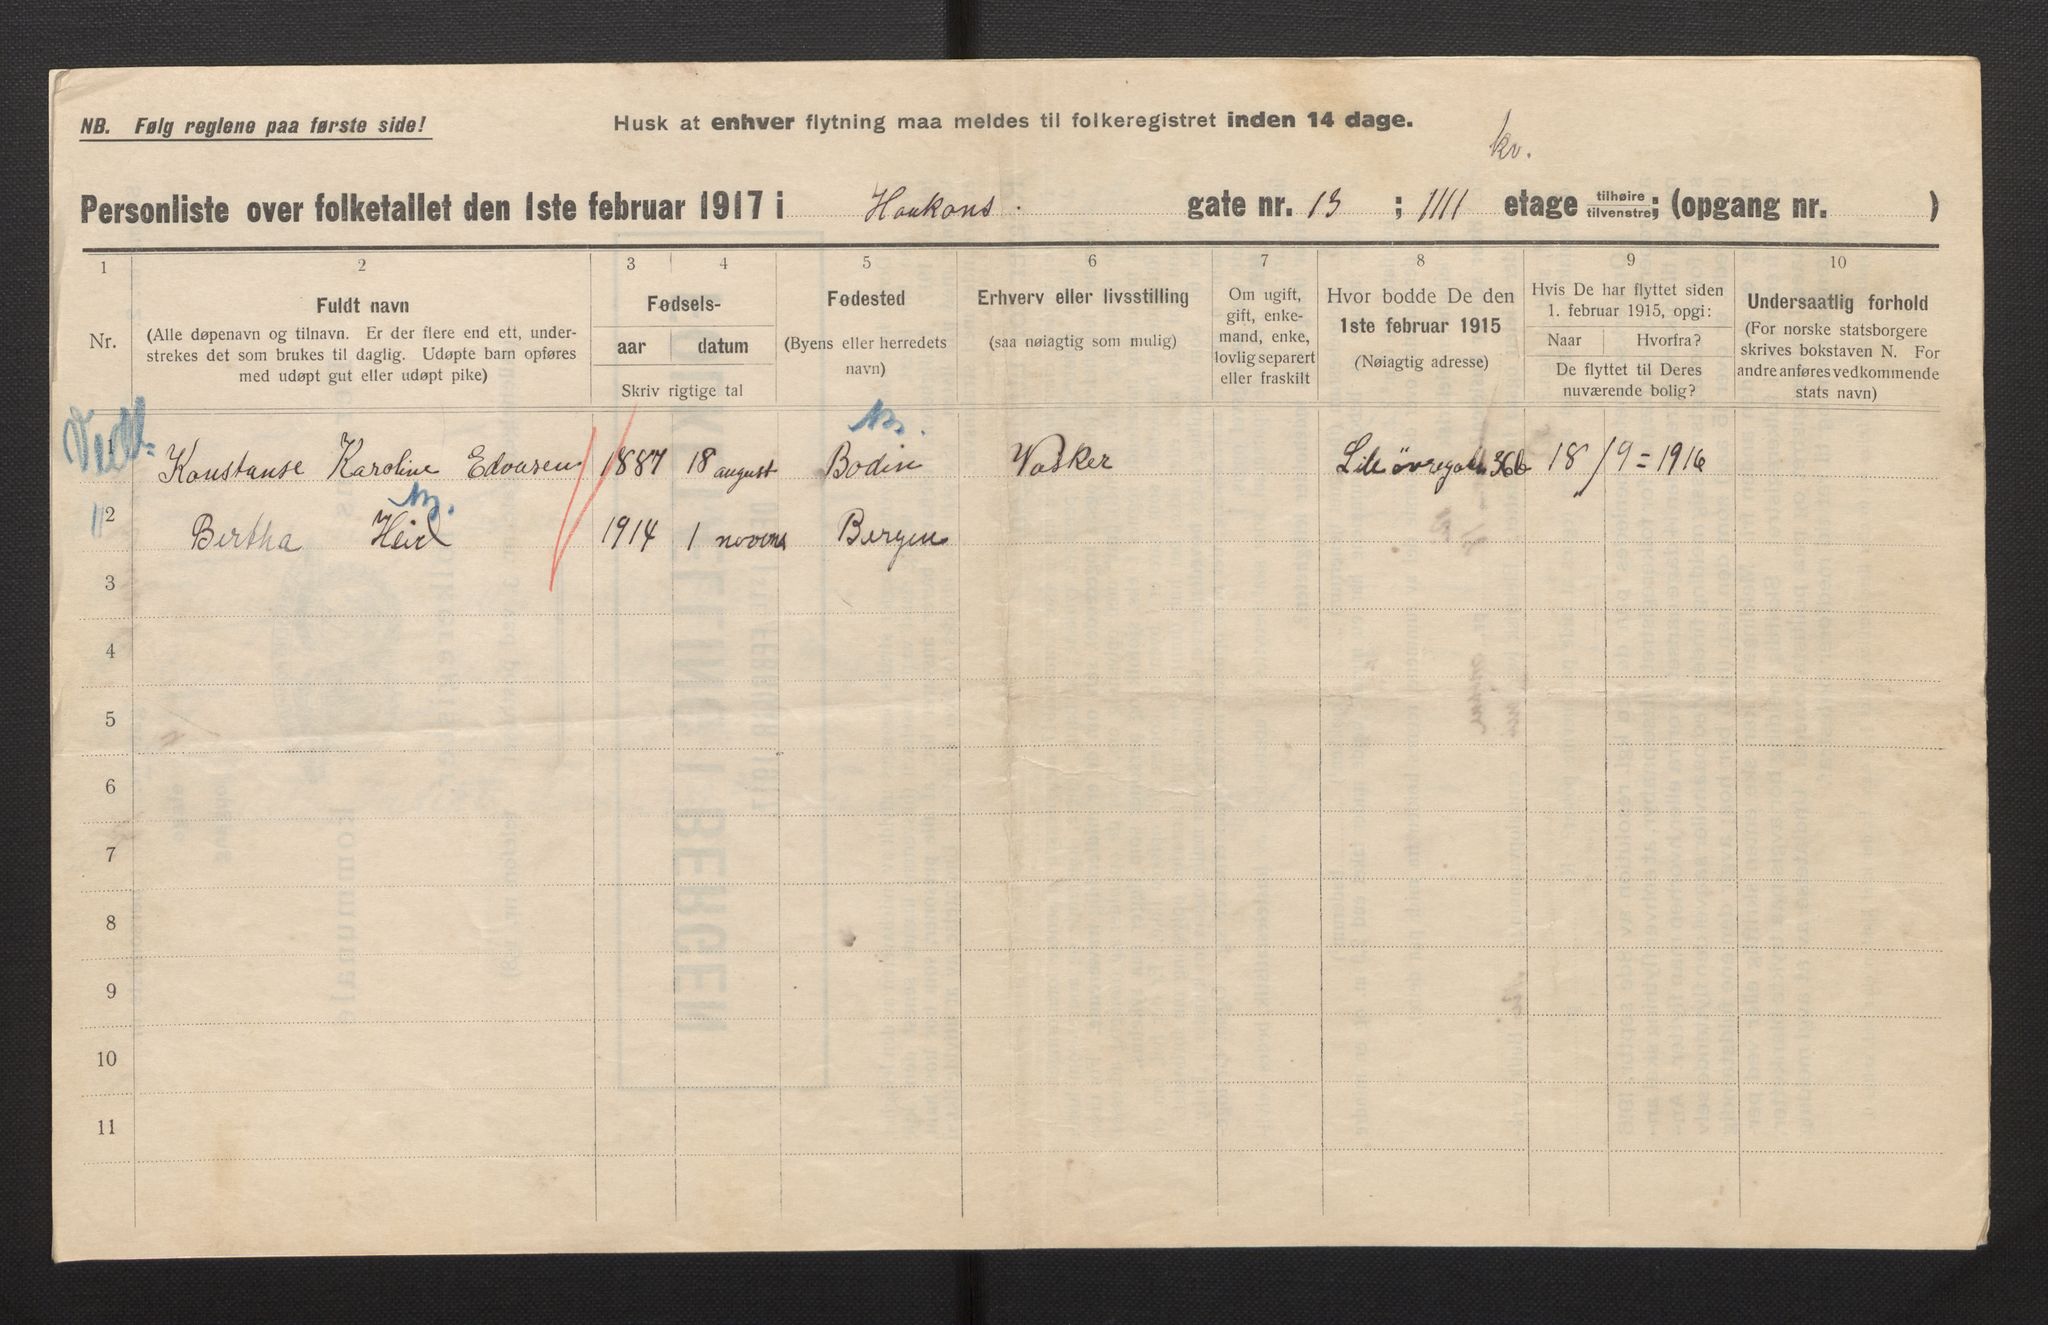 NB. Følg reglene paa første side!
Husk at enhver flytning maa meldes til folkeregistret inden 14 dage.
kv.
Personliste over folketallet den 1ste februar 1917 i Haakons gate nr. 13 ; 1111 etage tilhøire tilvenstre; (opgang nr. )
1 2 3 4 5 6 7 8 9 10
Nr.
Fuldt navn
(Alle døpenavn og tilnavn. Er der flere end ett, under-
strekes det som brukes til daglig. Udøpte barn opføres
med udøpt gut eller udøpt pike)
Fødsels-
aar datum
Skriv rigtige tal
Fødested
(Byens eller herredets
navn)
Erhverv eller livsstilling
(saa nøiagtig som mulig)
Om ugift,
gift, enke-
mand, enke,
lovlig separert
eller fraskilt
Hvor bodde De den
1ste februar 1915
(Nøiagtig adresse)
Hvis De har flyttet siden
1. februar 1915, opgi:
Naar Hvorfra?
De flyttet til Deres
nuværende bolig?
Undersaatlig forhold
(For norske statsborgere
skrives bokstaven N. For
andre anføres vedkommende
stats navn)
1 Konstanse Karoline Edvarsen 1887 18 august Bodin Vasker Lille øvregaten 36b 18/9=1916
2 Bertha 1914 1 Bergen
3
4
5
6
7
8
9
10
11